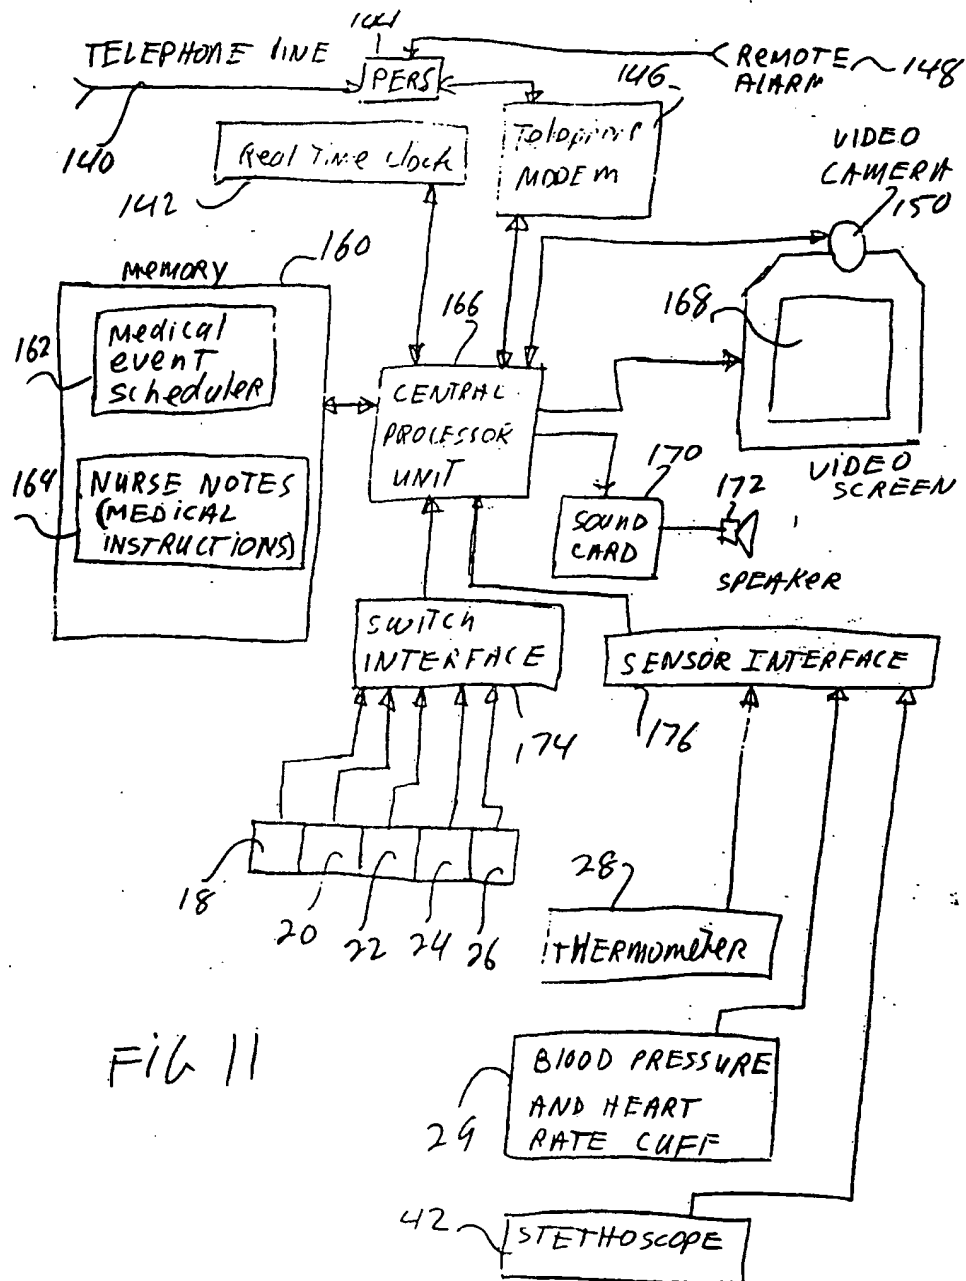 144
TELEPHONE LINE
PERS
REMOTE
ALARM
148
146
140
Real Time Clock
142
MODEM
VIDEO
CAMERA
150
MEMORY
160
162
Medical
event
scheduler
166
168
CENTRAL
PROCESSOR
UNIT
164
NURSE NOTES
(MEDICAL
INSTRUCTIONS)
170
172
VIDEO
SCREEN
SOUND
CARD
SPEAKER
SWITCH
INTERFACE
SENSOR INTERFACE
174
176
18
20
22
24
26
28
THERMOMETER
FIG 11
BLOOD PRESSURE
AND HEART
RATE CUFF
29
42
STETHOSCOPE